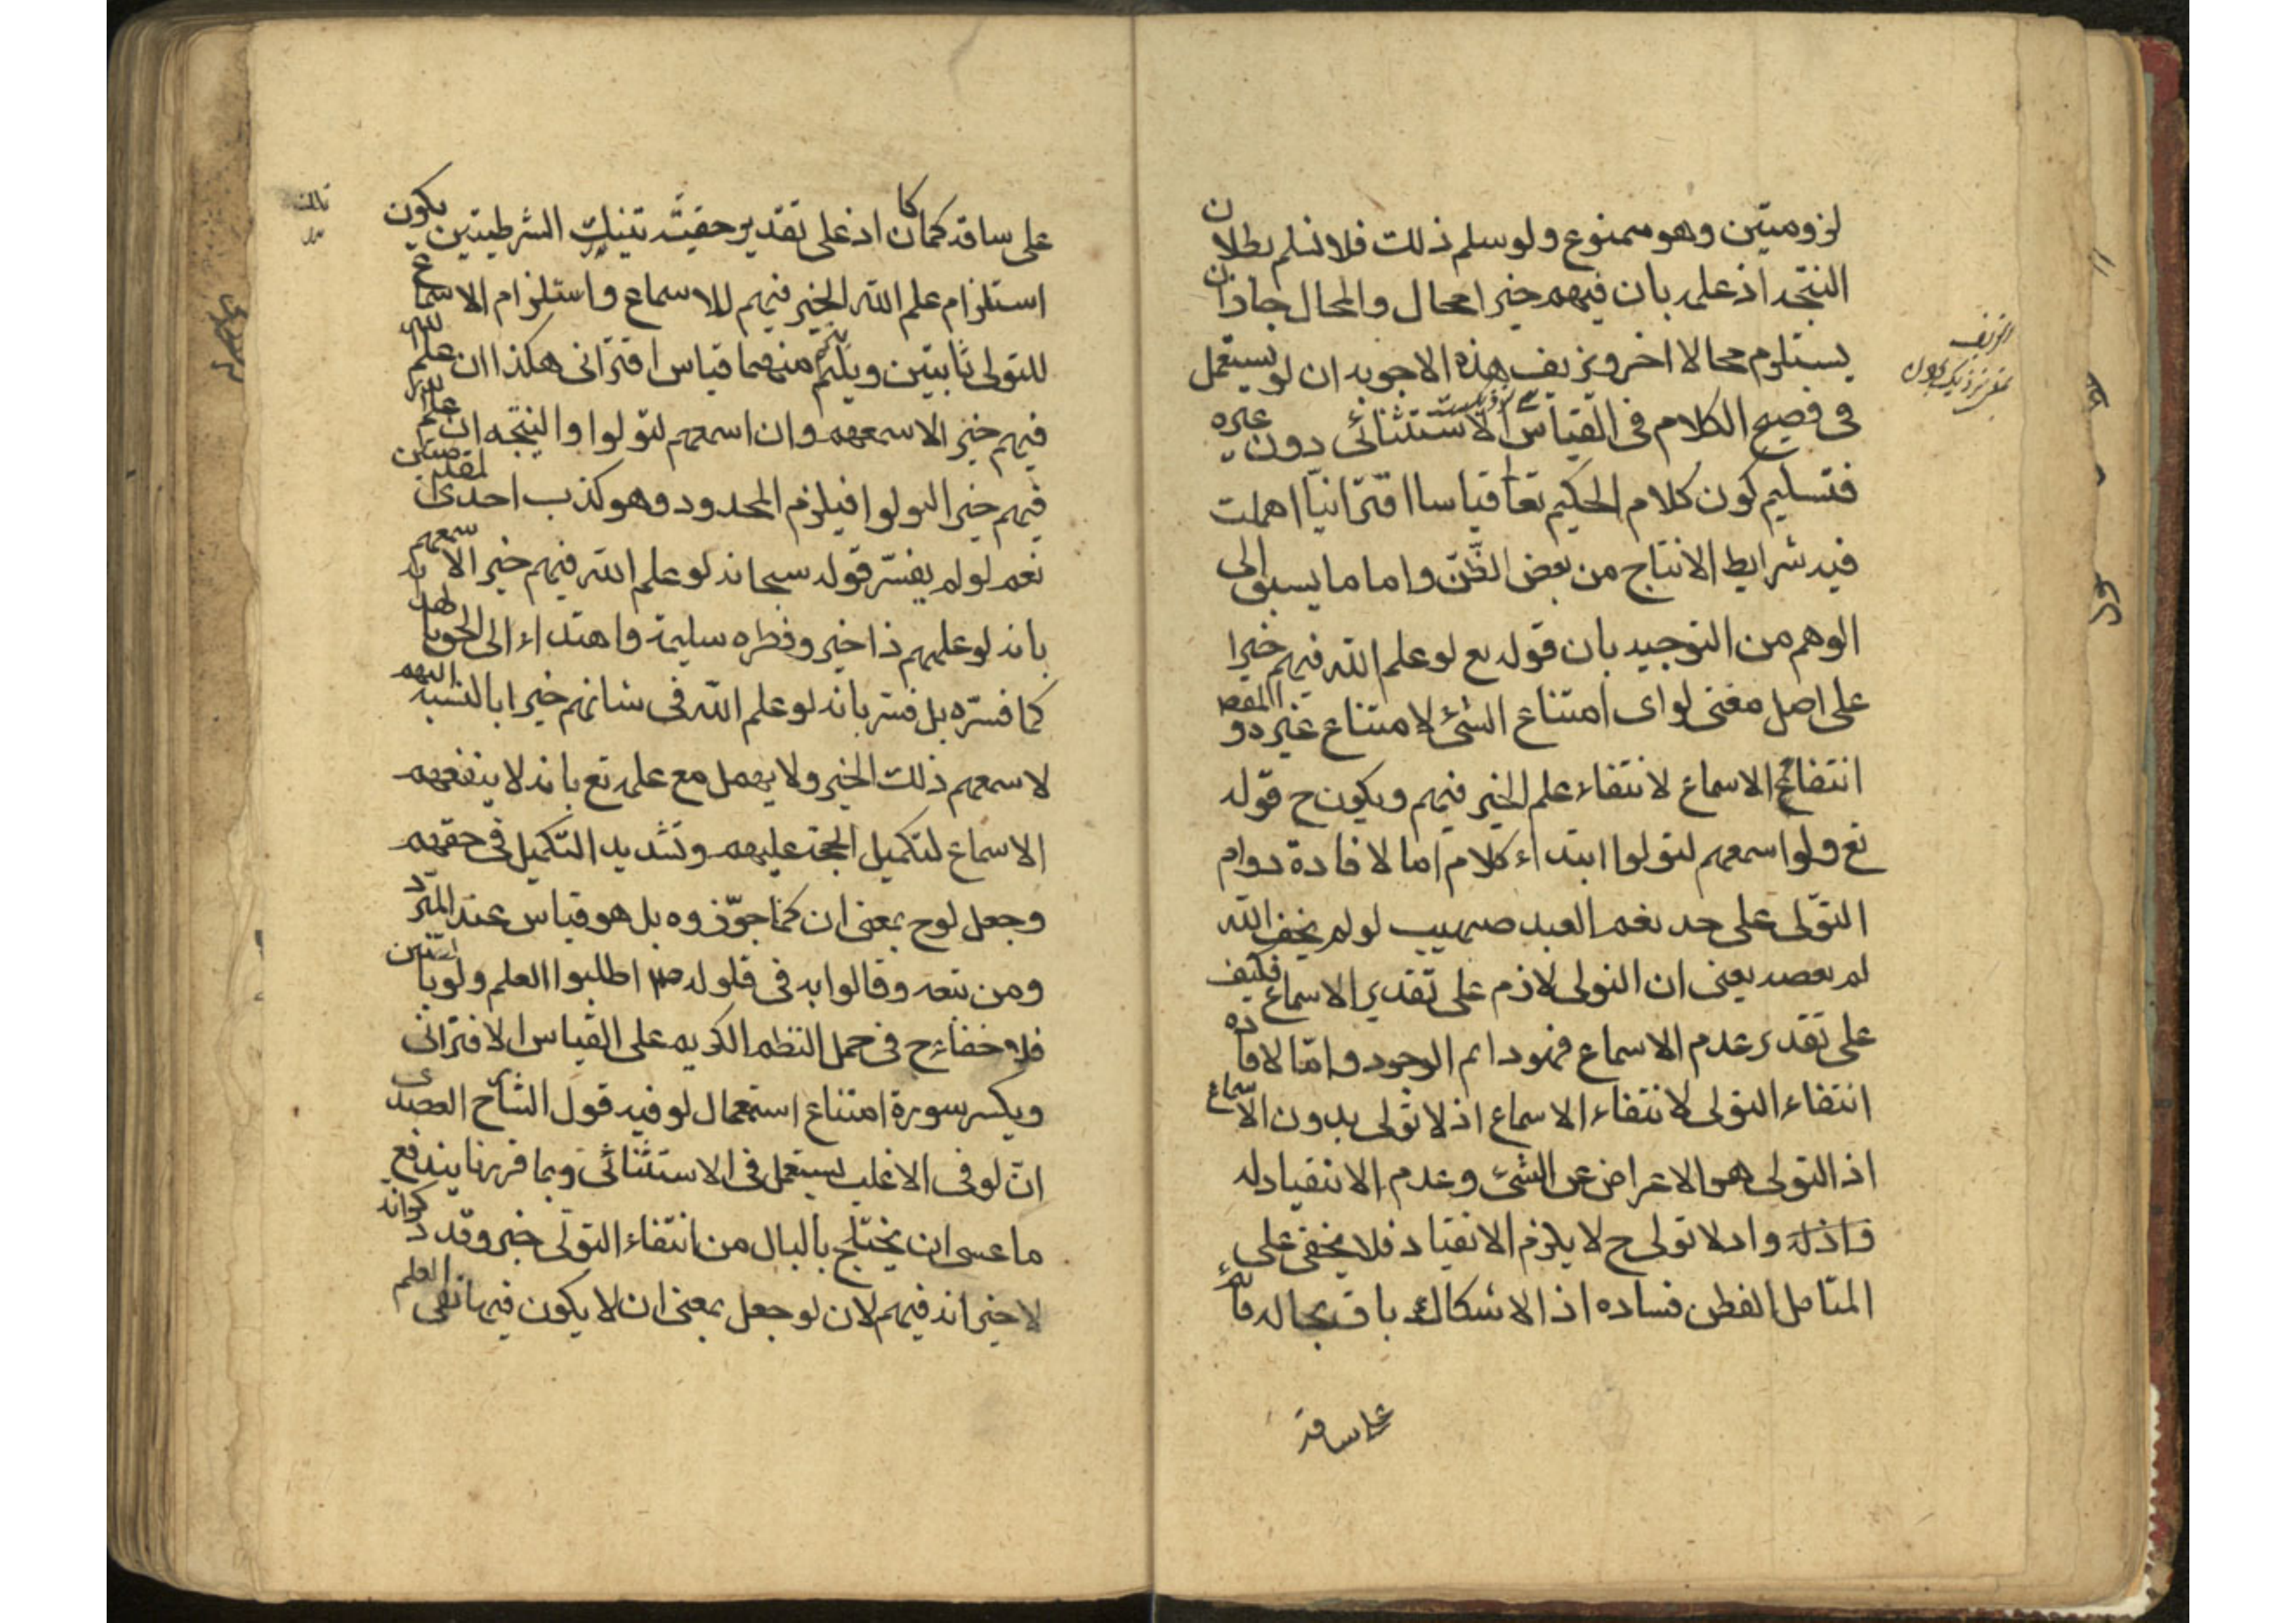 لزوميتين وهو ممنوع ولو سلم ذلك فلا نسلم بطلان
النتيجه اذ علمه بان فيهم خيرا محال والمحال جاز ان
يستلزم محالا اخر وتزييف هذه الاجوبه ان لو يستعمل
فى فصيح الكلام فى القياس الاستثنائى دون غيره
فتسليم كون كلام الحكيم تعا قياسا اقترانيا اهملت
فيه شرايط الانتاج من بعض الظن واما ما يسبق الى
الوهم من التوجيه بان قوله تع لو علم الله فيهم خيرا
على اصل معنى لو اى امتناع الشئ لامتناع غيره و المقصود
انتفاء الاسماع لانتفاء علم الخير فيهم ويكون ح قوله
تع ولو اسمعهم لتولوا ابتداء كلام اما لافادة دوام
التولى على حد نعم العبد صهيب لو لم يخف الله
لم يعصه يعنى ان التولى لازم على تقدير الاسماع فكيف
على تقدير عدم الاسماع فهو دائم الوجود واما لافاده
انتفاء التولى لانتفاء الاسماع اذ لا تولى بدون الاسماع
اذ التولى هو الاعراض عن الشئ وعدم الانقياد له
فاذله واد لا تولى ح لا يلزم الانقياد فلا يخفى على
المتامل الفطن فساده اذ الاشكال باق بحاله قائم
على ساقه
على ساقه كما كان اذ على تقدير حقيّة تينك الشرطيتين يكون
استلزام علم الله الخير فيهم للاسماع واستلزام الاسماع
للتولى ثابتين ويلتئم منهما قياس اقترانى هكذا ان علم الله
فيهم خير الاسمعهم وان اسمعهم لتولوا والنتيجه ان علم الله
فيهم خيرا لتولوا فيلزم المحدود وهو كذب احدى المقدمتين
نعم لو لم يفسر قوله سبحانه لو علم الله فيهم خير الاسمعهم
بانه لو علمهم ذا خير وفطره سليمة واهتداء الى الحق
كما فسره بل فسر بانه لو علم الله فى شانهم خيرا بالنسبه اليهم
لاسمعهم ذلك الخير ولا يهمل مع علمه تع بانه لا ينفعهم
الاسماع لتكميل الحجة عليهم وتشديد التكميل فى حقهم
وجعل لو ح بمعنى ان كما جوزوه بل هو قياس عند المبرد
ومن تبعه وقالوا به فى قوله صم اطلبوا العلم ولو بالصين
فلا خفاء ح فى حمل النظم الكريم على القياس الاقترانى
ويكسر سورة امتناع استعمال لو فيه قول الشارح العضدى
ان لو فى الاغلب يستعمل فى الاستثنائى وبما قررنا يندفع
ما عسى ان يختلج بالبال من انتفاء التولى خير وقد ذكر انه
لا خير انه فيهم لان لو جعل بمعنى ان لا يكون فيها نفى العلم